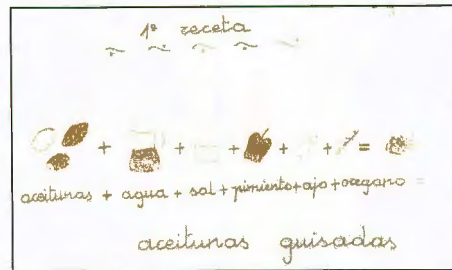 1ª receta
+ + + + + =
aceitunas + agua + sal + pimiento + ajo + oregano =
aceitunas guisadas